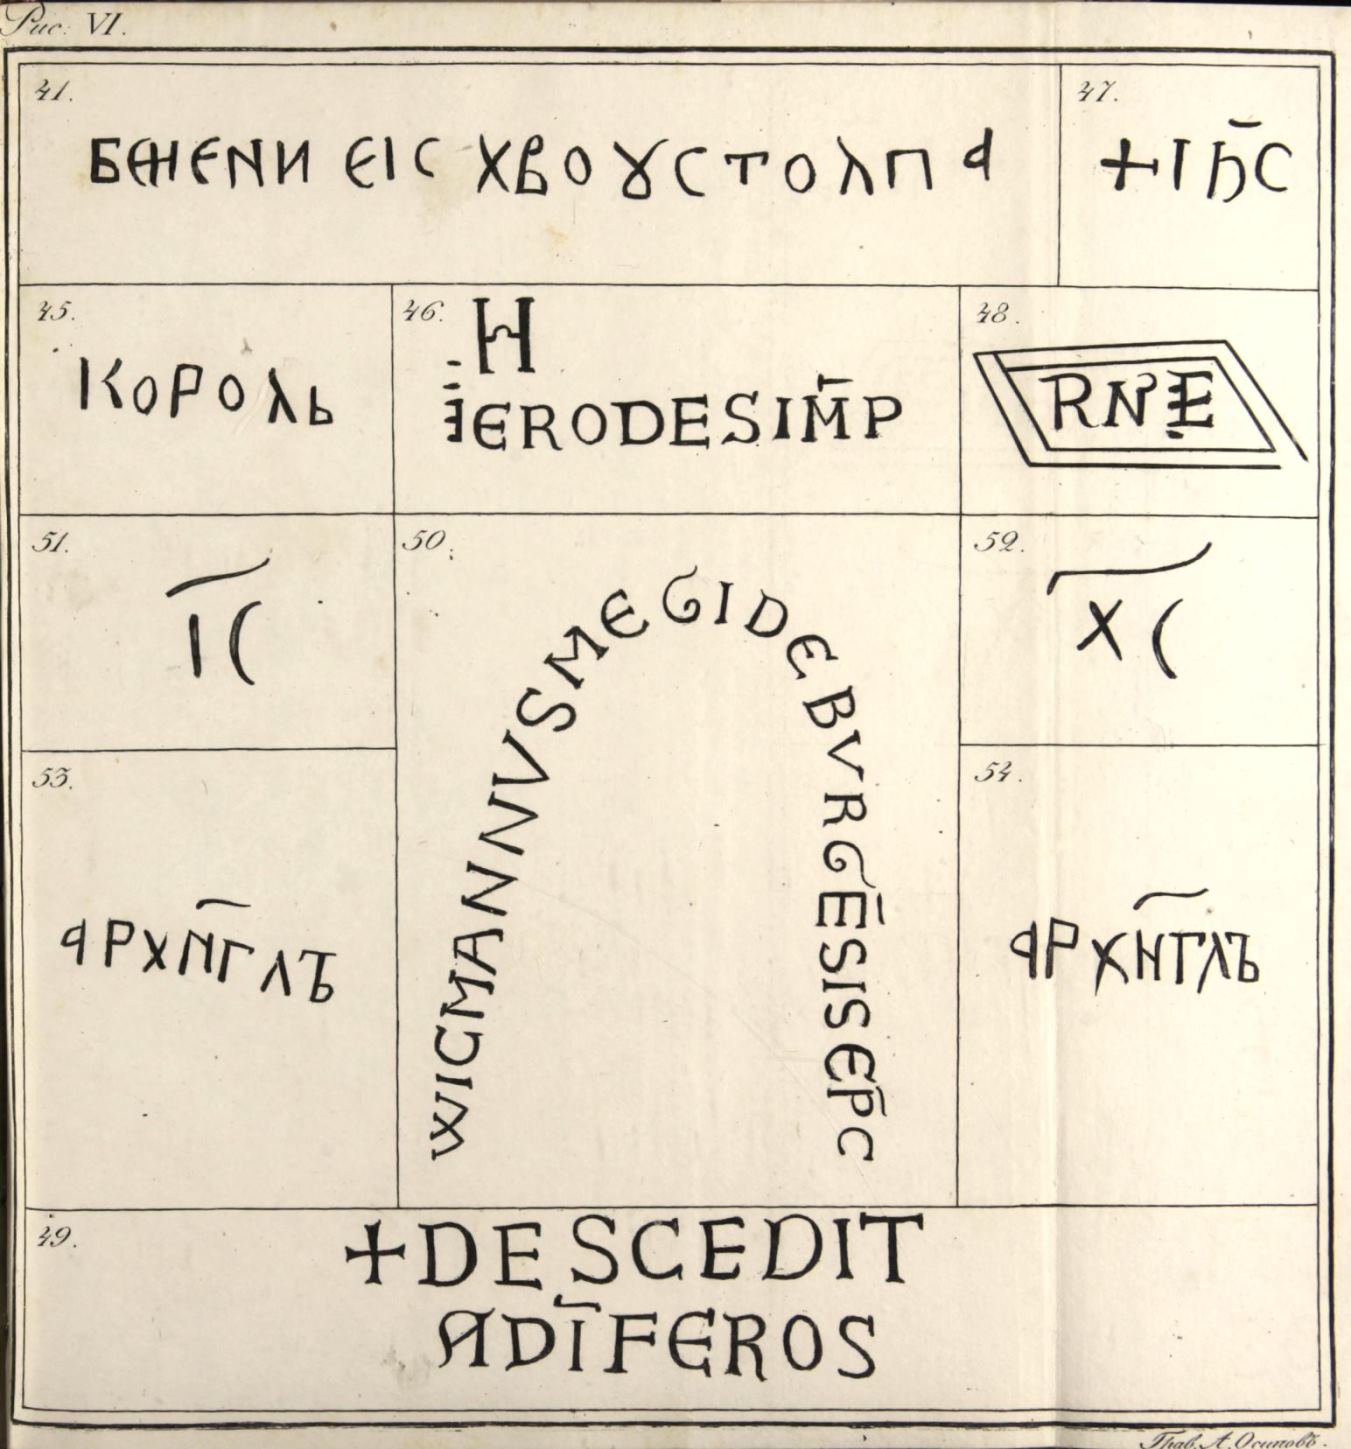 Рис. VI.
41.
БѤЕNИ ЕIС ХВОꙊСТОЛП А
47.
+IђС̄
45.
КОРОЛЬ
46.
H
IERODESIM̄P
48.
RNE
51.
IС
50.
WIGMANNVSMEGIDEBVRGĒSISEP̄C
52.
ХС
53.
АРХN҃ГЛЪ
54.
АРХН҃ГЛЪ
49.
+DESCEDIT
ADĪFEROS
Грав. А. Осиповъ.